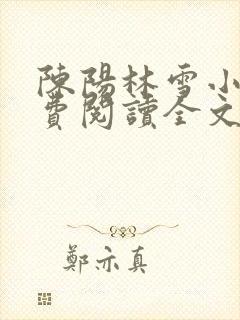 陳陽林雪小
費閱讀全文
鄭亦真